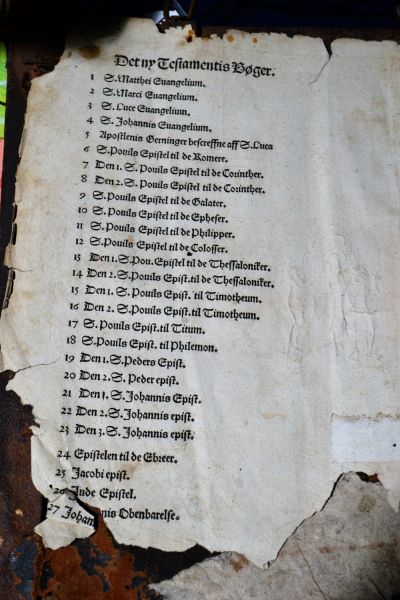 Det ny Testamentis Bøger.
1 S. Matthei Euangelium.
2 S. Marci Euangelium.
3 S. Luce Euangelium.
4 S. Johannis Euangelium.
5 Apostlenis Gerninger bescreffne aff S. Luca
6 S. Pouils Epistel til de Romere.
7 Den 1. S. Pouils Epistel til de Corinther.
8 Den 2. S. Pouils Epistel til de Corinther.
9 S. Pouils Epistel til de Galater.
10 S. Pouils Epistel til de Epheser.
11 S. Pouils Epistel til de Philipper.
12 S. Pouils Epistel til de Colosser.
13 Den 1. S. Pou. Epistel til de Thessaloniker.
14 Den 2. S. Pouils Epist. til de Thessaloniker.
15 Den 1. S. Pouils Epist. til Timotheum.
16 Den 2. S. Pouils Epist. til Timotheum.
17 S. Pouils Epist. til Titum.
18 S. Pouils Epist. til Philemon.
19 Den 1. S. Peders Epist.
20 Den 2. S. Peder epist.
21 Den 1. S. Johannis Epist.
22 Den 2. S. Johannis epist.
23 Den 3. S. Johannis epist.
24 Epistelen til de Ebreer.
25 Jacobi epist.
26 Jude Epistel.
27 Johannis Obenbarelse.